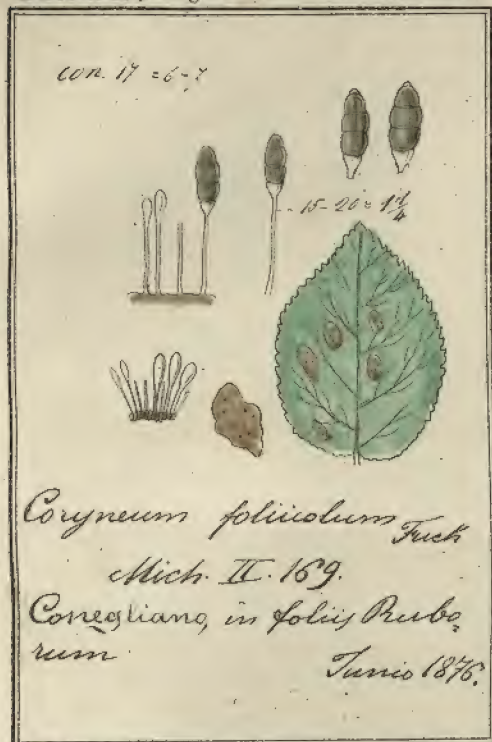 con. 17 = 6-7
15-20 = 1 1/4
Coryneum foliicolum Fuck
Mich. II. 169.
Conegliano, in foliis Rubo,
rum
Junio 1876.